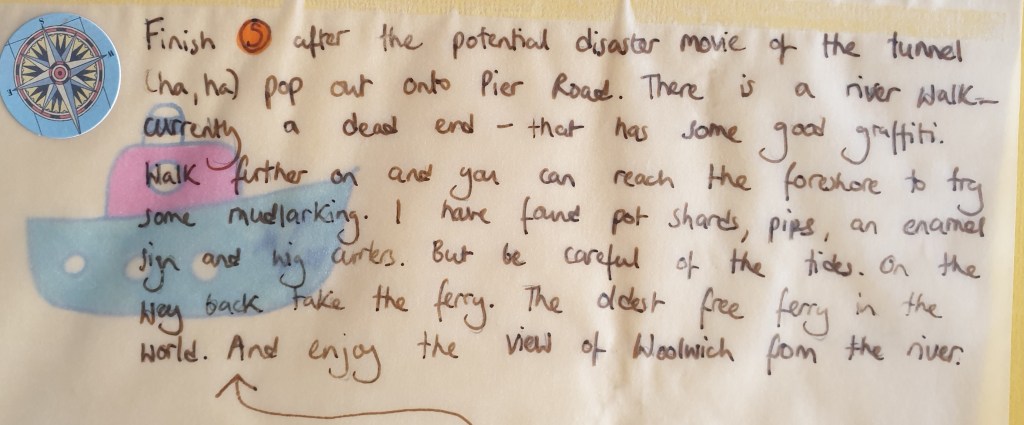 Finish 5 after the potential disaster movie of the tunnel
(ha, ha) pop out onto Pier Road. There is a river walk -
currently a dead end - that has some good graffiti.
Walk further on and you can reach the foreshore to try
some mudlarking. I have found pot shards, pips, an enamel
sign and wig curlers. But be careful of the tides. On the
way back take the ferry. The oldest free ferry in the
world. And enjoy the view of Woolwich from the river.